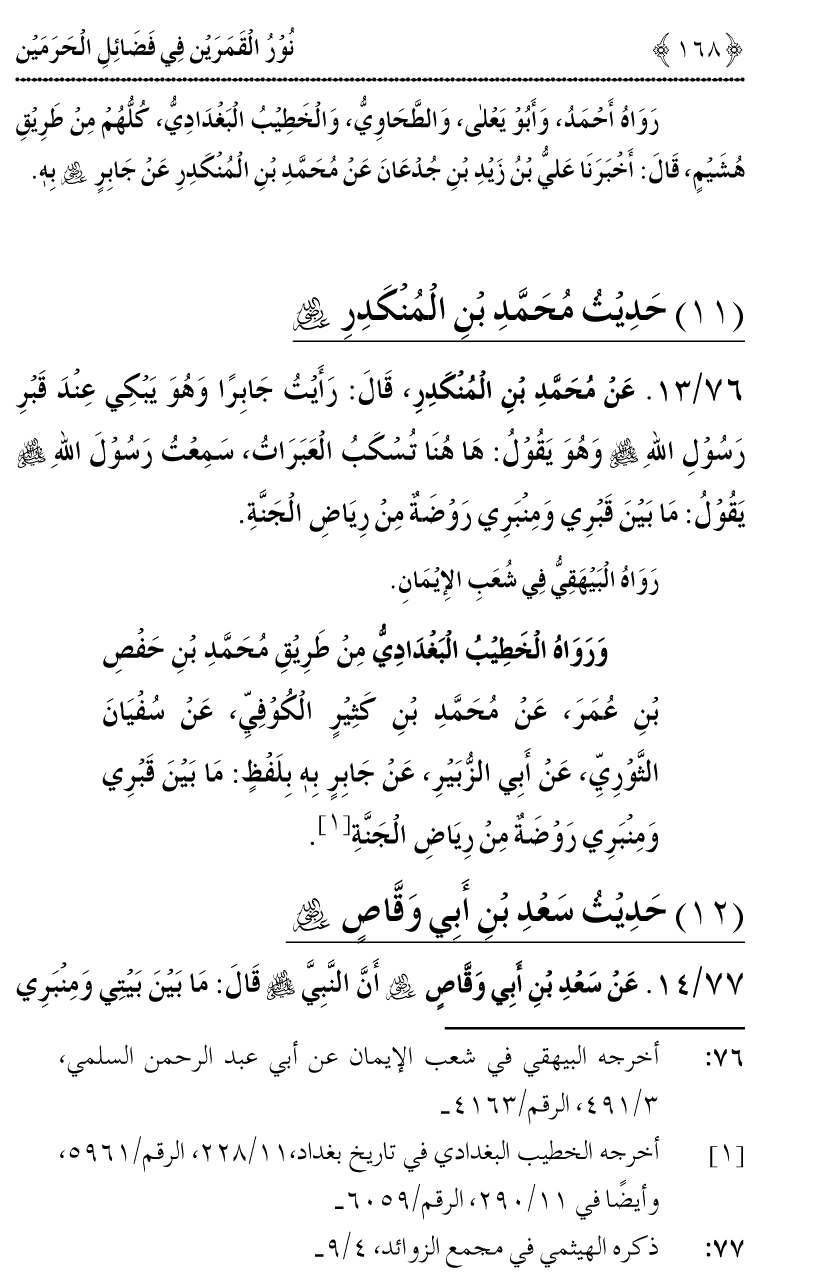 ﴿١٦٨﴾ نُوْرُ الْقَمَرَيْن فِي فَضَائِلِ الْحَرَمَيْن
رَوَاهُ أَحْمَدُ، وَأَبُوْ يَعْلٰى، وَالطَّحَاوِيُّ، وَالْخَطِيْبُ الْبَغْدَادِيُّ، كُلُّهُمْ مِنْ طَرِيْقِ
هُشَيْمٍ، قَالَ: أَخْبَرَنَا عَلِيُّ بْنُ زَيْدِ بْنِ جُدْعَانَ عَنْ مُحَمَّدِ بْنِ الْمُنْكَدِرِ عَنْ جَابِرٍ ﵁ بِهٖ.
(١١) حَدِيْثُ مُحَمَّدِ بْنِ الْمُنْكَدِرِ ﵁
١٣/٧٦. عَنْ مُحَمَّدِ بْنِ الْمُنْكَدِرِ، قَالَ: رَأَيْتُ جَابِرًا وَهُوَ يَبْكِي عِنْدَ قَبْرِ
رَسُوْلِ اللهِ ﷺ وَهُوَ يَقُوْلُ: هَا هُنَا تُسْكَبُ الْعَبَرَاتُ، سَمِعْتُ رَسُوْلَ اللهِ ﷺ
يَقُوْلُ: مَا بَيْنَ قَبْرِي وَمِنْبَرِي رَوْضَةٌ مِنْ رِيَاضِ الْجَنَّةِ.
رَوَاهُ الْبَيْهَقِيُّ فِي شُعَبِ الإِيْمَانِ.
وَرَوَاهُ الْخَطِيْبُ الْبَغْدَادِيُّ مِنْ طَرِيْقِ مُحَمَّدِ بْنِ حَفْصِ
بْنِ عُمَرَ، عَنْ مُحَمَّدِ بْنِ كَثِيْرٍ الْكُوْفِيِّ، عَنْ سُفْيَانَ
الثَّوْرِيِّ، عَنْ أَبِي الزُّبَيْرِ، عَنْ جَابِرٍ بِهٖ بِلَفْظٍ: مَا بَيْنَ قَبْرِي
وَمِنْبَرِي رَوْضَةٌ مِنْ رِيَاضِ الْجَنَّةِ[١].
(١٢) حَدِيْثُ سَعْدِ بْنِ أَبِي وَقَّاصٍ ﵁
١٤/٧٧. عَنْ سَعْدِ بْنِ أَبِي وَقَّاصٍ ﵁ أَنَّ النَّبِيَّ ﷺ قَالَ: مَا بَيْنَ بَيْتِي وَمِنْبَرِي
٧٦: أخرجه البيهقي في شعب الإيمان عن أبي عبد الرحمن السلمي،
٤٩١/٣، الرقم/٤١٦٣ـ
[١] أخرجه الخطيب البغدادي في تاريخ بغداد، ٢٢٨/١١، الرقم/٥٩٦١،
وأيضًا في ٢٩٠/١١، الرقم/٦٠٥٩ـ
٧٧: ذكره الهيثمي في مجمع الزوائد، ٩/٤ـ